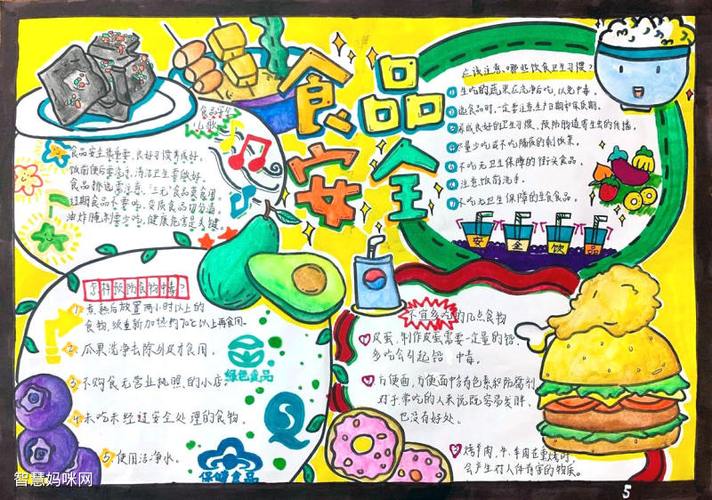 食品安全
食品安全儿歌
食品安全很重要,良好习惯养成好。
饭前便后要洗手,清洁卫生要做好。
食品挑选需注意,“三无”食品莫食用。
过期食品不要吃,变质食品切勿沾。
油炸腌制要少吃,健康危害是关键。
应该注意哪些饮食卫生习惯?
生吃的蔬果应洗净后吃,以免中毒。
选食品时,一定要注意生产日期和保质期。
养成良好的卫生习惯,预防肠道寄生虫的传播。
尽量少吃或不吃隔夜的剩饭菜。
不吃无卫生保障的街头食品。
注意饭前洗手。
不吃无卫生保障的生食食品。
安全饮品
怎样预防食物中毒?
1 煮熟后放置两小时以上的
食物,须重新加热约70℃以上再食用。
2 瓜果洗净去除外皮才食用。
3 不购食无营业执照的小店。
4 未吃未经过安全处理的食物。
5 使用洁净水。
绿色食品
保健食品
不宜多吃的几点食物
1 皮蛋,制作皮蛋需要一定量的铅,
多吃会引起铅中毒。
2 方便面,方便面中含有色素和防腐剂
对于常吃的人来说既容易发胖,
也没有好处。
3 烤羊肉,牛、羊肉在熏烤时,
会产生对人体有害的物质。
5
智慧妈咪网